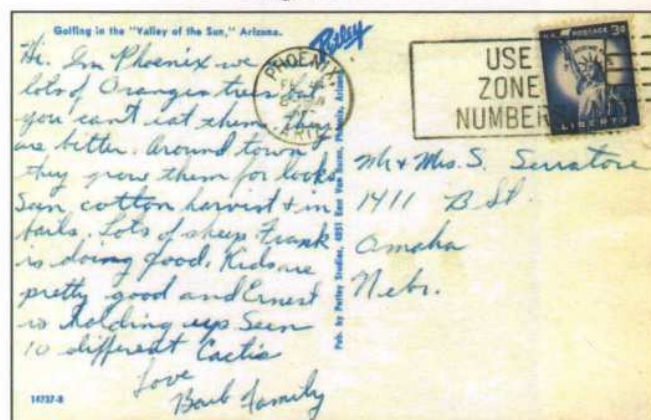 Golfing in the "Valley of the Sun," Arizona.
Petley
Hi. In Phoenix we
lots of Oranges trees but
you can't eat them. They
are bitter. Around town
they grow them for looks
Seen cotton harvist & in
bails. Lots of sheep. Frank
is doing good. Kids are
pretty good and Ernest
is holding up. Seen
10 different Cactis
Love
Barb Family
14737-B
Pub. by Petley Studios, 4051 East Van Buren, Phoenix, Arizona
PHOENIX
ARIZ
USE
ZONE
NUMBER
U.S. POSTAGE 3¢
IN GOD WE TRUST
LIBERTY
Mr & Mrs. S. Serratore
1411 B St.
Omaha
Nebr.